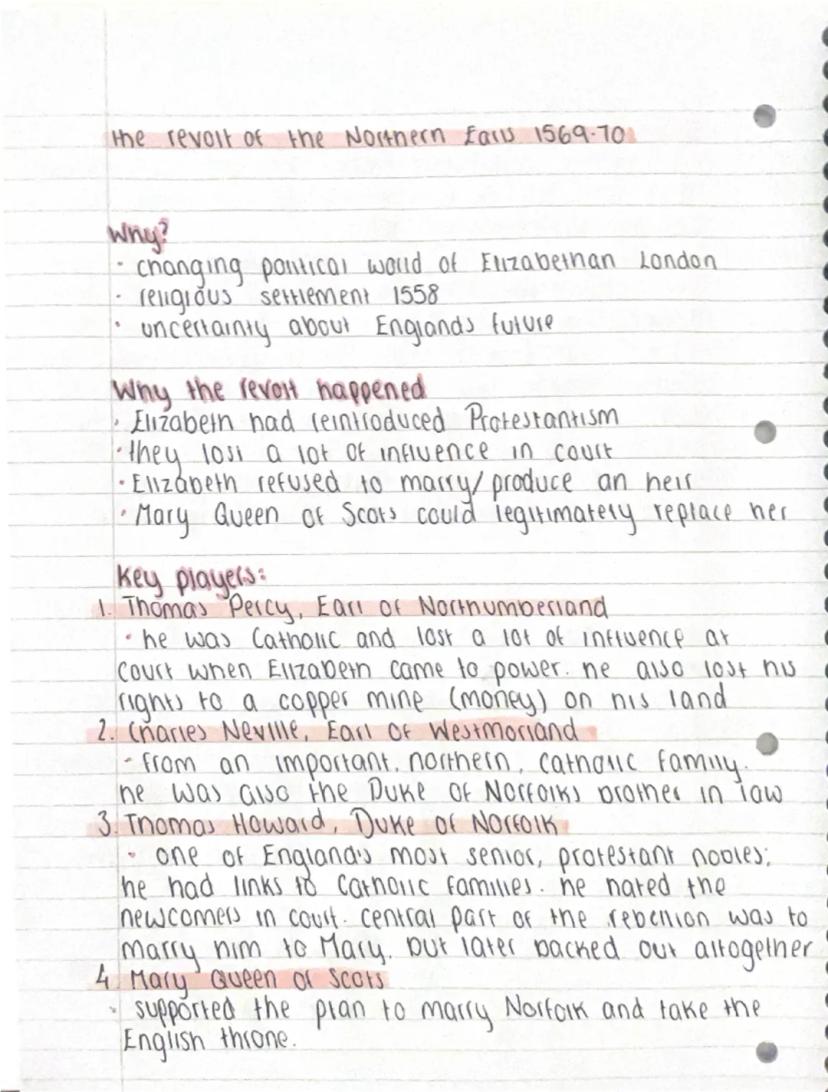 the revolt of the Northern Earls 1569-70
Why?
· changing political world of Elizabethan London
· religious settlement 1558
· uncertainty about Englands future
Why the revolt happened
· Elizabeth had reintroduced Protestantism
· they lost a lot of influence in court
· Elizabeth refused to marry/produce an heir
· Mary Queen of Scots could legitimately replace her
Key players:
1. Thomas Percy, Earl of Northumberland
· he was Catholic and lost a lot of influence at
court when Elizabeth came to power. he also lost his
rights to a copper mine (money) on his land
2. Charles Neville, Earl of Westmorland
· from an important, northern, catholic family.
he was also the Duke of Norfolks brother in law
3. Thomas Howard, Duke of Norfolk
· one of England's most senior, protestant nobles;
he had links to Catholic families. he hated the
newcomers in court. central part of the rebellion was to
marry him to Mary, but later backed out altogether
4. Mary Queen of Scots
· supported the plan to marry Norfolk and take the
English throne.